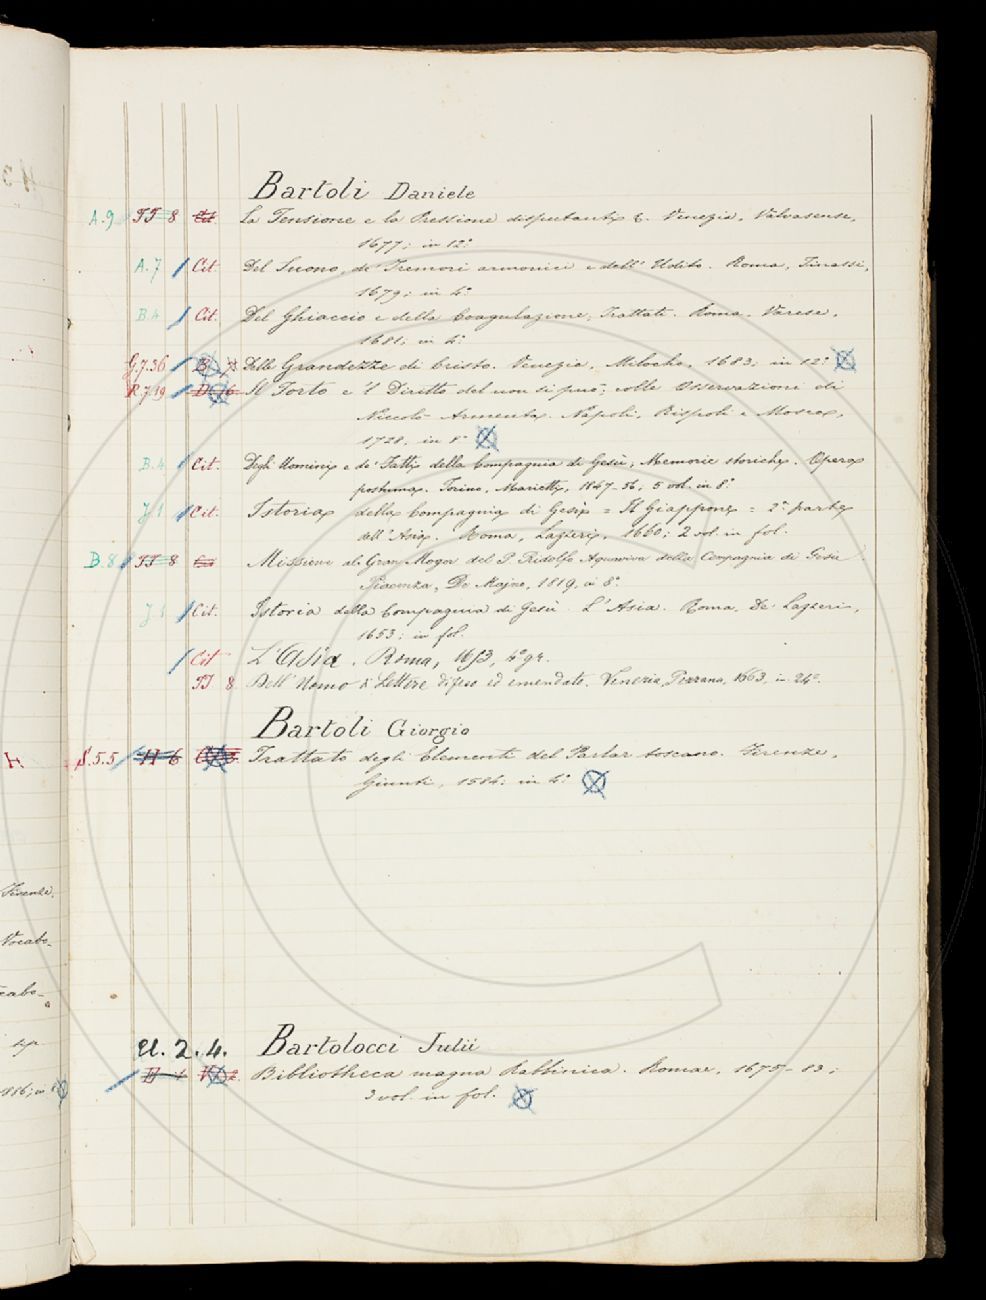 Bartoli Daniele
A.9 TT 8 Cit. La Tensione e la Pressione disputanti &. Venezia, Valvasense,
1677; in 12°
A.7 / Cit. Del Suono, de' Tremori armonici e dell' Udito. Roma, Tinassi,
1679; in 4°
B.4 / Cit. Del Ghiaccio e della Coagulazione; Trattati. Roma, Varese,
1681; in 4°
G.7.36 / B Delle Grandezze di Cristo. Venezia, Milocho, 1683; in 12°
R.7.19 / D 16 Il Torto e 'l Diritto del non si può; colle Osservazioni di
Niccolò Amenta. Napoli, Bispoli e Mosca,
1728; in 8°
B.4 / Cit. Degli Uomini e de' Fatti della Compagnia di Gesù; Memorie storiche. Opera
postuma. Torino, Marietti, 1847-56; 5 vol. in 8°
J 1 / Cit. Istoria della Compagnia di Gesù = Il Giappone = 2ª parte
dell' Asia. Roma, Lazzeri, 1660; 2 vol. in fol.
B.8 / TT 8 Missione al Gran Mogor del P. Ridolfo Aquaviva della Compagnia di Gesù
Piacenza, Del Majno, 1819, in 8°
J 1 / Cit. Istoria della Compagnia di Gesù. L' Asia. Roma, De Lazzeri,
1653; in fol.
/ Cit L' Asia. Roma, 1653, 4° gr.
TT 8 Dell' Uomo di Lettere difeso ed emendato. Venezia, Pezzana, 1663, in 24°.
Bartoli Giorgio
S.5.5 / H 6 Trattato degli Elementi del Parlar toscano. Firenze,
Giunti, 1584; in 4°
U. 2. 4. Bartolocci Julii
/ 2. Bibliotheca magna Rabbinica. Romae, 1675-83;
3 vol. in fol.
H.
Firenze,
Vocabo-
cabo-
1886; in 8°